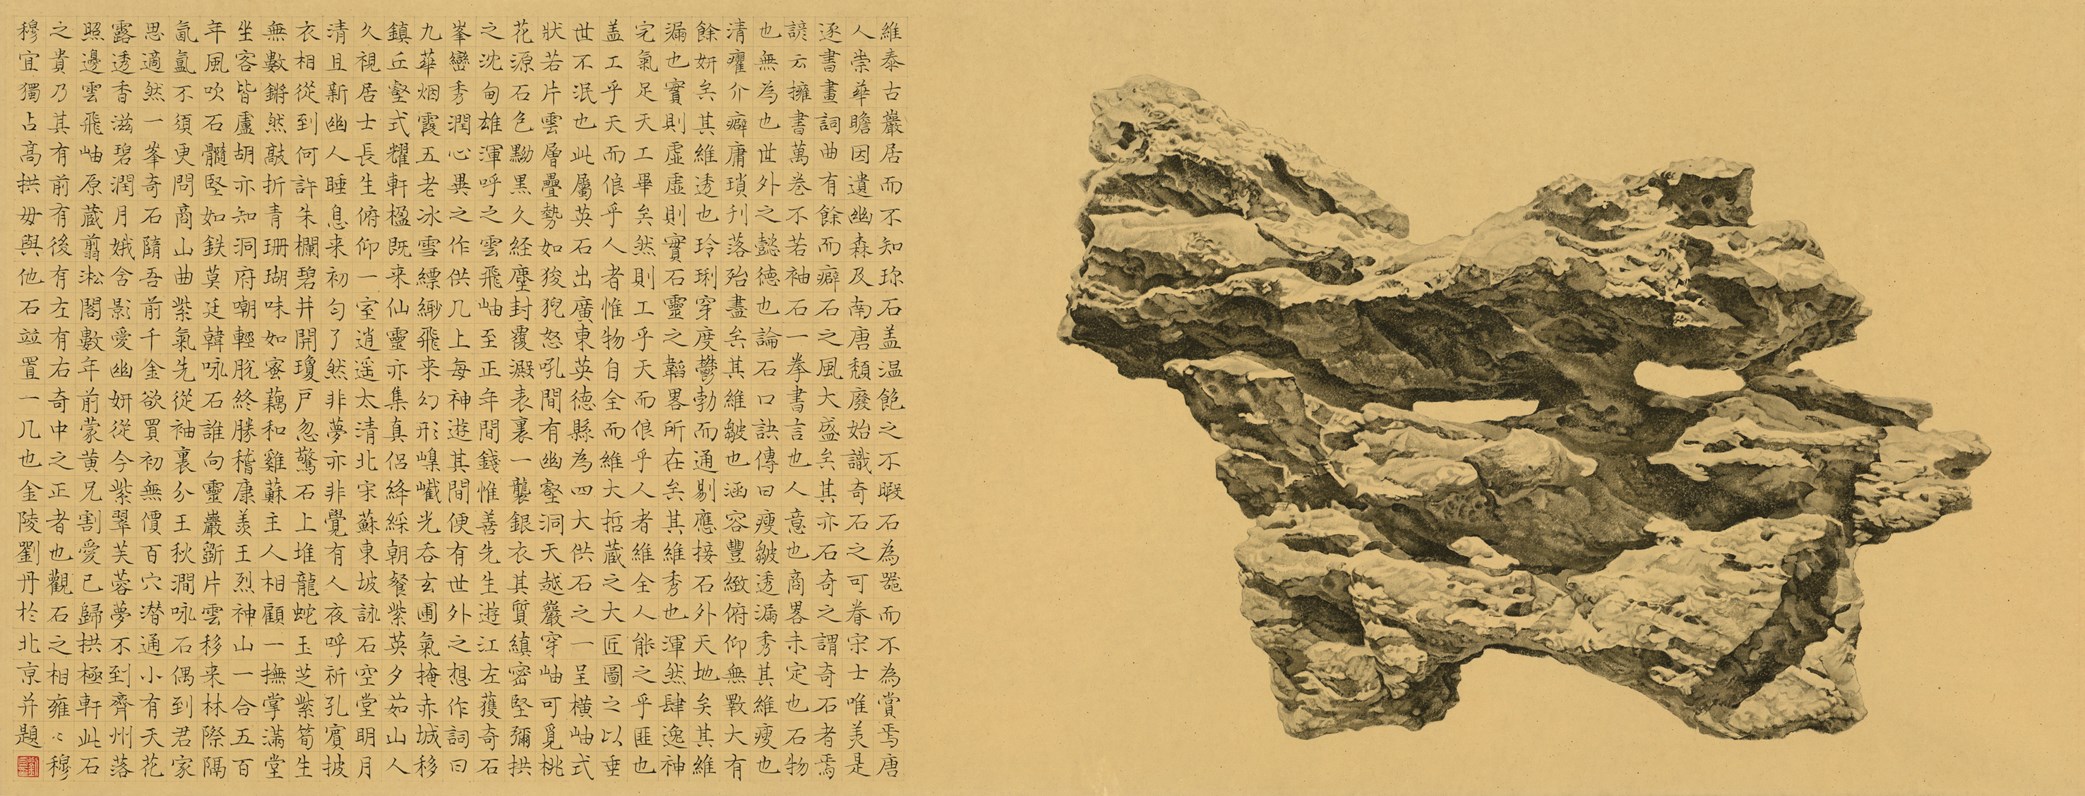 維泰古巖居而不知珎石盖温飽之不暇石為噐而不為賞焉唐
人崇華瞻因遺幽森及南唐頹廢始識奇石之可眷宗士唯美是
逐書畫詞曲有餘而癖石之風大盛矣其亦石奇之謂奇石者焉
諺云擁書萬卷不若袖石一拳書言也人意也商畧未定也石物
也無為也世外之懿德也論石口訣傳曰瘦皺透漏秀其維瘦也
清癯介癖庸瑣刋落殆盡矣其維皺也涵容豐緻俯仰無斁大有
餘妍矣其維透也玲琍穿度鬱勃而通剔應接石外天地矣其維
漏也實則虛虛則實石靈之韜畧所在矣其維秀也渾然肆逸神
完氣足天工畢矣然則工乎天而俍乎人者維全人能之乎匪也
盖工乎天而俍乎人者惟物自全而維大哲蔵之大匠圖之以垂
世不泯也此屬英石出廣東英德縣為四大供石之一呈橫岫式
狀若片雲層疊勢如狻猊怒吼間有幽壑洞天越巖穿岫可覓桃
花源石色黝黑久經塵封覆澱表裏一襲銀衣其質縝密堅彌拱
之沈甸雄渾呼之雲飛岫至正年間錢惟善先生遊江左獲奇石
峯巒秀潤心異之作供几上每神遊其間便有世外之想作詞曰
九華烟霞五老冰雪縹緲飛来幻形嵲嶻光吞玄圃氣掩赤城移
鎮丘壑式耀軒楹既来仙靈亦集真侶絳綵朝餐紫英夕茹山人
久視居士長生俯仰一室逍遥太清北宋蘇東坡詠石空堂明月
清且新幽人睡息来初匀了然非夢亦非覺有人夜呼祈孔賓披
衣相從到何許朱欄碧井開瓊戶忽驚石上堆龍蛇玉芝紫筍生
無數鏘然敲折青珊瑚味如蜜藕和雞蘇主人相顧一撫掌滿堂
坐客皆盧胡亦知洞府嘲輕脫終勝稽康羡王烈神山一合五百
年風吹石髓堅如鉄莫廷韓咏石誰向靈巖斲片雲移来林際隔
氤氳不須更問商山曲紫氣先從袖裏分王秋澗咏石偶到君家
思適然一峯奇石隨吾前千金欲買初無價百穴潜通小有天花
露透香滋碧潤月娥舍影愛幽妍從今紫翠芙蓉夢不到齊州落
照邊雲飛岫原蔵翦淞閣數年前蒙黄兄割愛已歸拱極軒此石
之貴乃其有前有後有左有右奇中之正者也觀石之相雍〻穆
穆宜獨占髙拱毋與他石竝置一几也金陵劉丹於北京并題